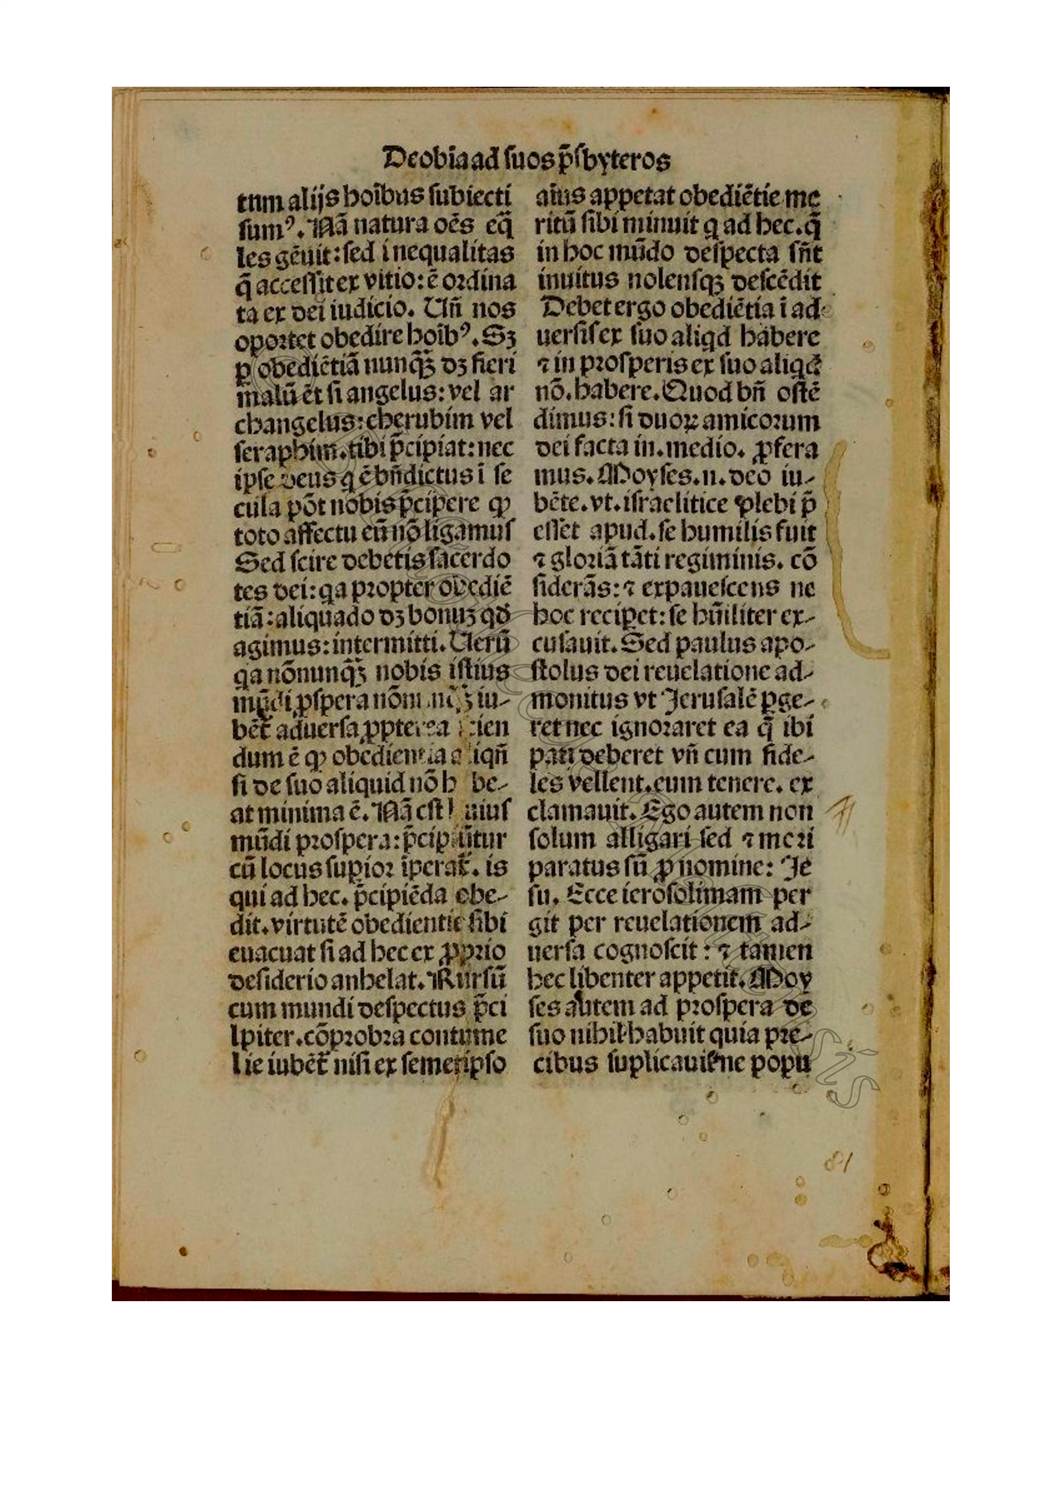 De obīa ad suos p̄sbyteros
tum alijs hoībus subiecti
sumꝰ. Nā natura oēs eq̄
les gēuit: sed inequalitas
q̄ accessit ex vitio: ē ordina
ta ex dei iudicio. Uñ nos
oportet obedire hoībꝰ. Sꝫ
ꝑ obediētiā nunq̄ꝫ dꝫ fieri
malū ēt si angelus: vel ar
changelus: cherubim vel
seraphim. tibi p̄cipiat: nec
ipse deus q ē bñdictus ī se
cula pōt nobis p̄cipere ꝙ
toto affectu eū nō ligamus
Sed scire debetis sacerdo
tes dei: qa propter obediē
tiā: aliquādo dꝫ bonuꝫ qd̄
agimus: intermitti. Uerū
qa nōnunq̄ꝫ nobis istius
mūdi ꝓspera nōnunq̄ꝫ iu-
bēt̄ aduersa ꝓpterea scien
dum ē ꝙ obedientia aliqñ
si de suo aliquid nō habe-
at minima ē. Nā cst huius
mūdi prospera: p̄cipiūtur
cū locus suꝑior īperat̄. is
qui ad hec. p̄cipiēda obe-
dit. virtutē obedientie sibi
euacuat si ad hec ex ꝓprio
desiderio anhelat. Rursū
cum mundi despectus p̄ci
lpiter. cōprobra contume
lie iubēt̄ nisi ex semetipso
aīus appetat obediētie me
ritū sibi minuit q ad hec. q̄
in hoc mūdo despecta sn̄t
inuitus nolensqꝫ descēdit
Debet ergo obediētia ī ad
uersis ex suo aliqd habere
⁊ in prosperis ex suo aliqd
nō. habere. Quod bñ ostē
dimus: si duoꝝ amicorum
dei facta in. medio. ꝓfera
mus. Moyses. n. deo iu-
bēte. vt. israelitice plebi p̄
esset apud. se humilis fuit
⁊ gloriā tāti regiminis. cō
siderās: ⁊ expauescens ne
hoc reciꝑet: se hūiliter ex-
cusauit. Sed paulus apo-
stolus dei reuelatione ad-
monitus vt Jerusalē ꝑge-
ret nec ignoraret ea q̄ ibi
pati deberet vñ cum fide-
les vellent. eum tenere. ex
clamauit. Ego autem non
solum alligari sed ⁊ mori
paratus sū ꝓ nomine: Je
su. Ecce ierosolimam per
git per reuelationem ad-
uersa cognoscit: ⁊ tamen
hec libenter appetit. Moy
ses autem ad prospera de
suo nihil habuit quia pre-
cibus suplicauit ne popu
81